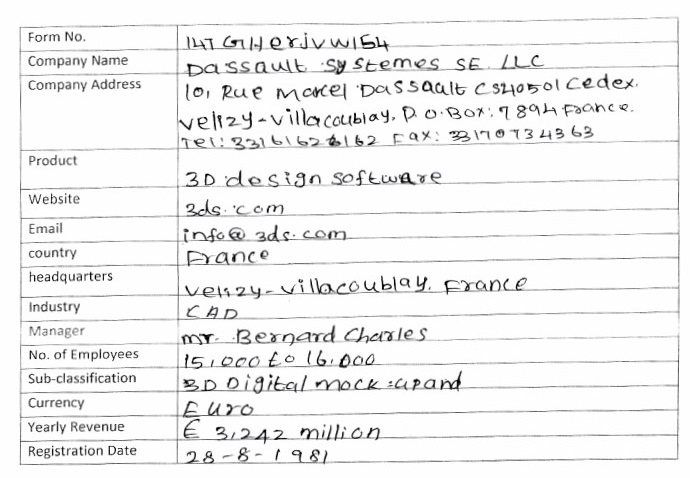 Form No. 14T GIHerjvW154
Company Name Dassault Systemes SE. LLC
Company Address 10, Rue Marcel Dassault CS40501 Cedex.
Velizy-Villacoublay, P.O.Box: 7894 France.
Tel: 33161626162 Fax: 33170734363
Product 3D design software
Website 3ds.com
Email info@3ds.com
country France
headquarters Velizy-Villacoublay. France
Industry CAD
Manager mr. Bernard Charles
No. of Employees 15,000 to 16,000
Sub-classification 3D Digital mock-up and
Currency Euro
Yearly Revenue € 3,242 million
Registration Date 28-8-1981